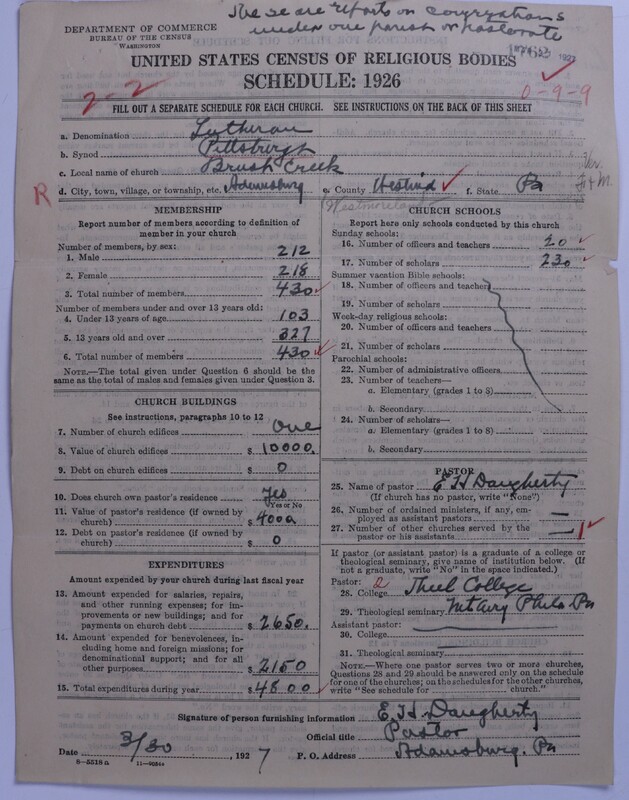 These are reports on congregations
under one parish or pastorate
DEPARTMENT OF COMMERCE
BUREAU OF THE CENSUS
WASHINGTON
1927
UNITED STATES CENSUS OF RELIGIOUS BODIES
SCHEDULE: 1926
2-2
0-9-9
FILL OUT A SEPARATE SCHEDULE FOR EACH CHURCH. SEE INSTRUCTIONS ON THE BACK OF THIS SHEET
a. Denomination Lutheran
b. Synod Pittsburgh
c. Local name of church Brush Creek
R
d. City, town, village, or township, etc. Adamsburg e. County Westmd f. State Pa
Westmoreland
MEMBERSHIP
Report number of members according to definition of
member in your church
Number of members, by sex:
1. Male 212
2. Female 218
3. Total number of members 430
Number of members under and over 13 years old:
4. Under 13 years of age 103
5. 13 years old and over 327
6. Total number of members 430
NOTE.—The total given under Question 6 should be
the same as the total of males and females given under Question 3.
CHURCH BUILDINGS
See instructions, paragraphs 10 to 12
7. Number of church edifices one
8. Value of church edifices $ 10000.
9. Debt on church edifices $ 0
10. Does church own pastor's residence Yes
Yes or No
11. Value of pastor's residence (if owned by
church) $ 4000
12. Debt on pastor's residence (if owned by
church) $ 0
EXPENDITURES
Amount expended by your church during last fiscal year
13. Amount expended for salaries, repairs,
and other running expenses; for im-
provements or new buildings; and for
payments on church debt $ 2650.
14. Amount expended for benevolences, in-
cluding home and foreign missions; for
denominational support; and for all
other purposes $ 2150
15. Total expenditures during year $ 4800
CHURCH SCHOOLS
Report here only schools conducted by this church
Sunday schools:
16. Number of officers and teachers 20
17. Number of scholars 230
Summer vacation Bible schools:
18. Number of officers and teachers
19. Number of scholars
Week-day religious schools:
20. Number of officers and teachers
21. Number of scholars
Parochial schools:
22. Number of administrative officers
23. Number of teachers—
a. Elementary (grades 1 to 8)
b. Secondary
24. Number of scholars—
a. Elementary (grades 1 to 8)
b. Secondary
PASTOR
25. Name of pastor E H Daugherty
(If church has no pastor, write "None")
26. Number of ordained ministers, if any, em-
ployed as assistant pastors —
27. Number of other churches served by the
pastor or his assistants 1
If pastor (or assistant pastor) is a graduate of a college or
theological seminary, give name of institution below. (If
not a graduate, write "No" in the space indicated.)
Pastor: 2
28. College Thiel College
29. Theological seminary Mt Airy Phila Pa
Assistant pastor:
30. College
31. Theological seminary
NOTE.—Where one pastor serves two or more churches,
Questions 28 and 29 should be answered only on the schedule
for one of the churches; on the schedules for the other churches,
write "See schedule for church."
Signature of person furnishing information E. H. Daugherty
Official title Pastor
Date 3/30, 1927 P. O. Address Adamsburg. Pa
8-5518a